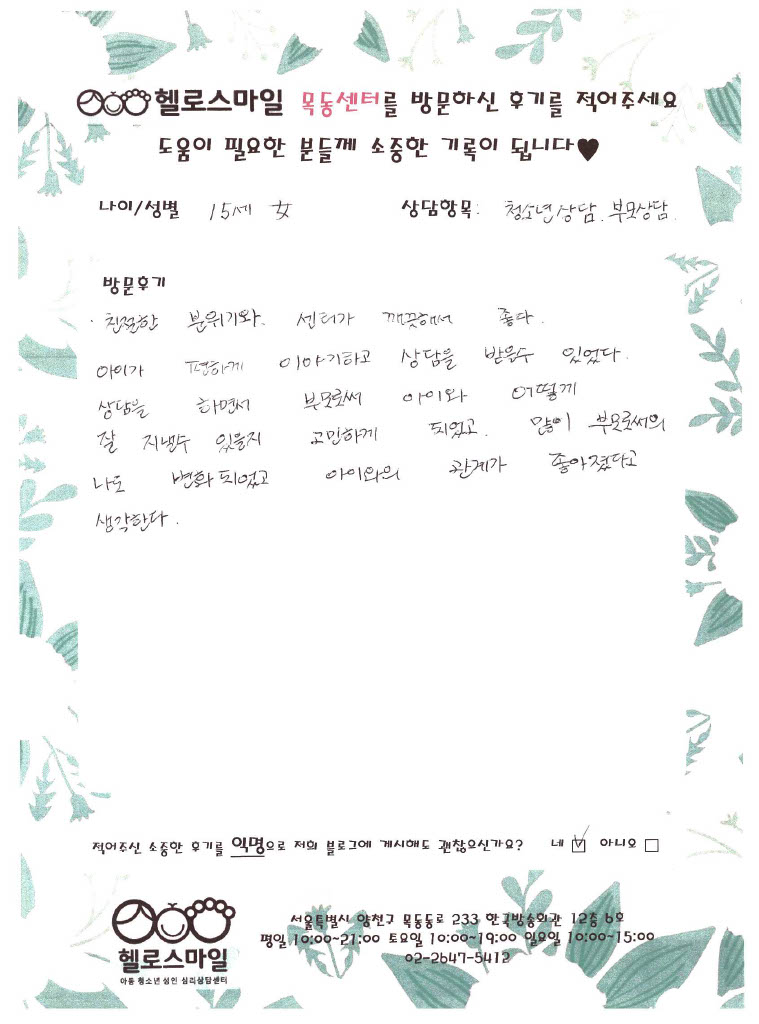 헬로스마일 목동센터를 방문하신 후기를 적어주세요
도움이 필요한 분들께 소중한 기록이 됩니다♥
나이/성별 15세 女 상담항목: 청소년상담. 부모상담.
방문후기
· 친절한 분위기와. 센터가 깨끗해서 좋다.
아이가 편하게 이야기하고 상담을 받을수 있었다.
상담을 하면서 부모로써 아이와 어떻게
잘 지낼수 있을지 고민하게 되었고. 많이 부모로써의
나도 변화되었고 아이와의 관계가 좋아졌다고
생각한다.
적어주신 소중한 후기를 익명으로 저희 블로그에 게시해도 괜찮으신가요? 네 ☑ 아니오 □
헬로스마일
아동 청소년 성인 심리상담센터
서울특별시 양천구 목동동로 233 한국방송회관 12층 6호
평일 10:00~21:00 토요일 10:00~19:00 일요일 10:00~15:00
02-2647-5412